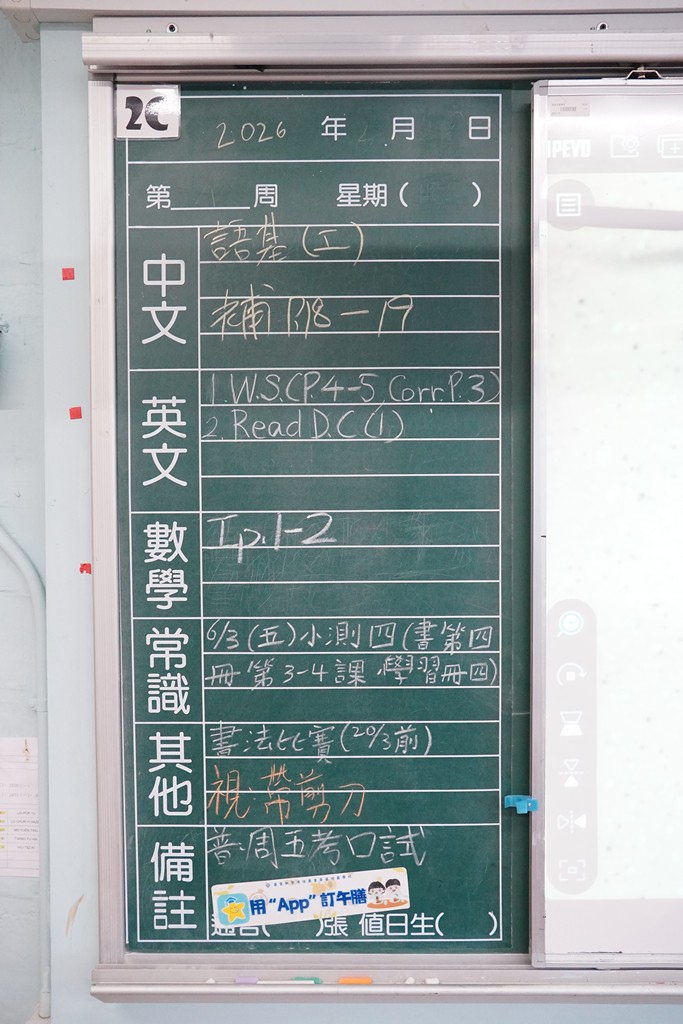 2C
2026 年 月 日
第____周 星期( )
中文
語基(工)
補 P.18-19
英文
1. W.S.(P.4-5, Corr.P.3)
2. Read D.C(1)
數學
Ip.1-2
常識
6/3(五)小測四(書第四
冊第3-4課 學習冊四)
其他
書法比賽(20/3前)
視:帶剪刀
備註
普:周五考口試
用“App”訂午膳
通告( )張 值日生( )
IPEVO